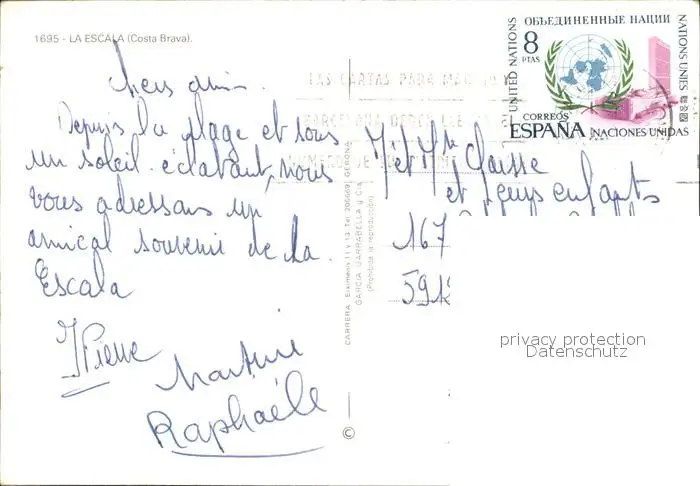 1695 - LA ESCALA (Costa Brava).
Chers amis.
Depuis la plage et sous
un soleil éclatant, nous
vous adressons un
amical souvenir de La
Escala
JPierre
Martine
Raphaéle
CARRERA. Eiximenis 11 y 13 Tel. 206669. GERONA
GARCIA GARRABELLA y Cia.
(Prohibida la reproducción)
©
UNITED NATIONS
ОБЪЕДИНЕННЫЕ НАЦИИ
NATIONS UNIES
8
PTAS
CORREOS
ESPAÑA
NACIONES UNIDAS
LAS CARTAS PARA
BARCELONA DEBEN
M et Mme
et leurs enfants
167
591
privacy protection
Datenschutz